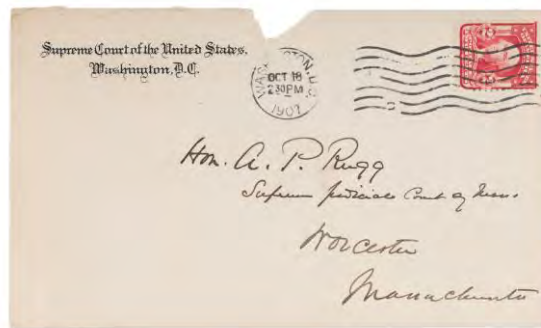 Supreme Court of the United States.
Washington, D.C.
WASHINGTON, D.C.
OCT 18
2 30 PM
1907
Hon. A. P. Rugg
Supreme Judicial Court of Mass.
Worcester
Massachusetts